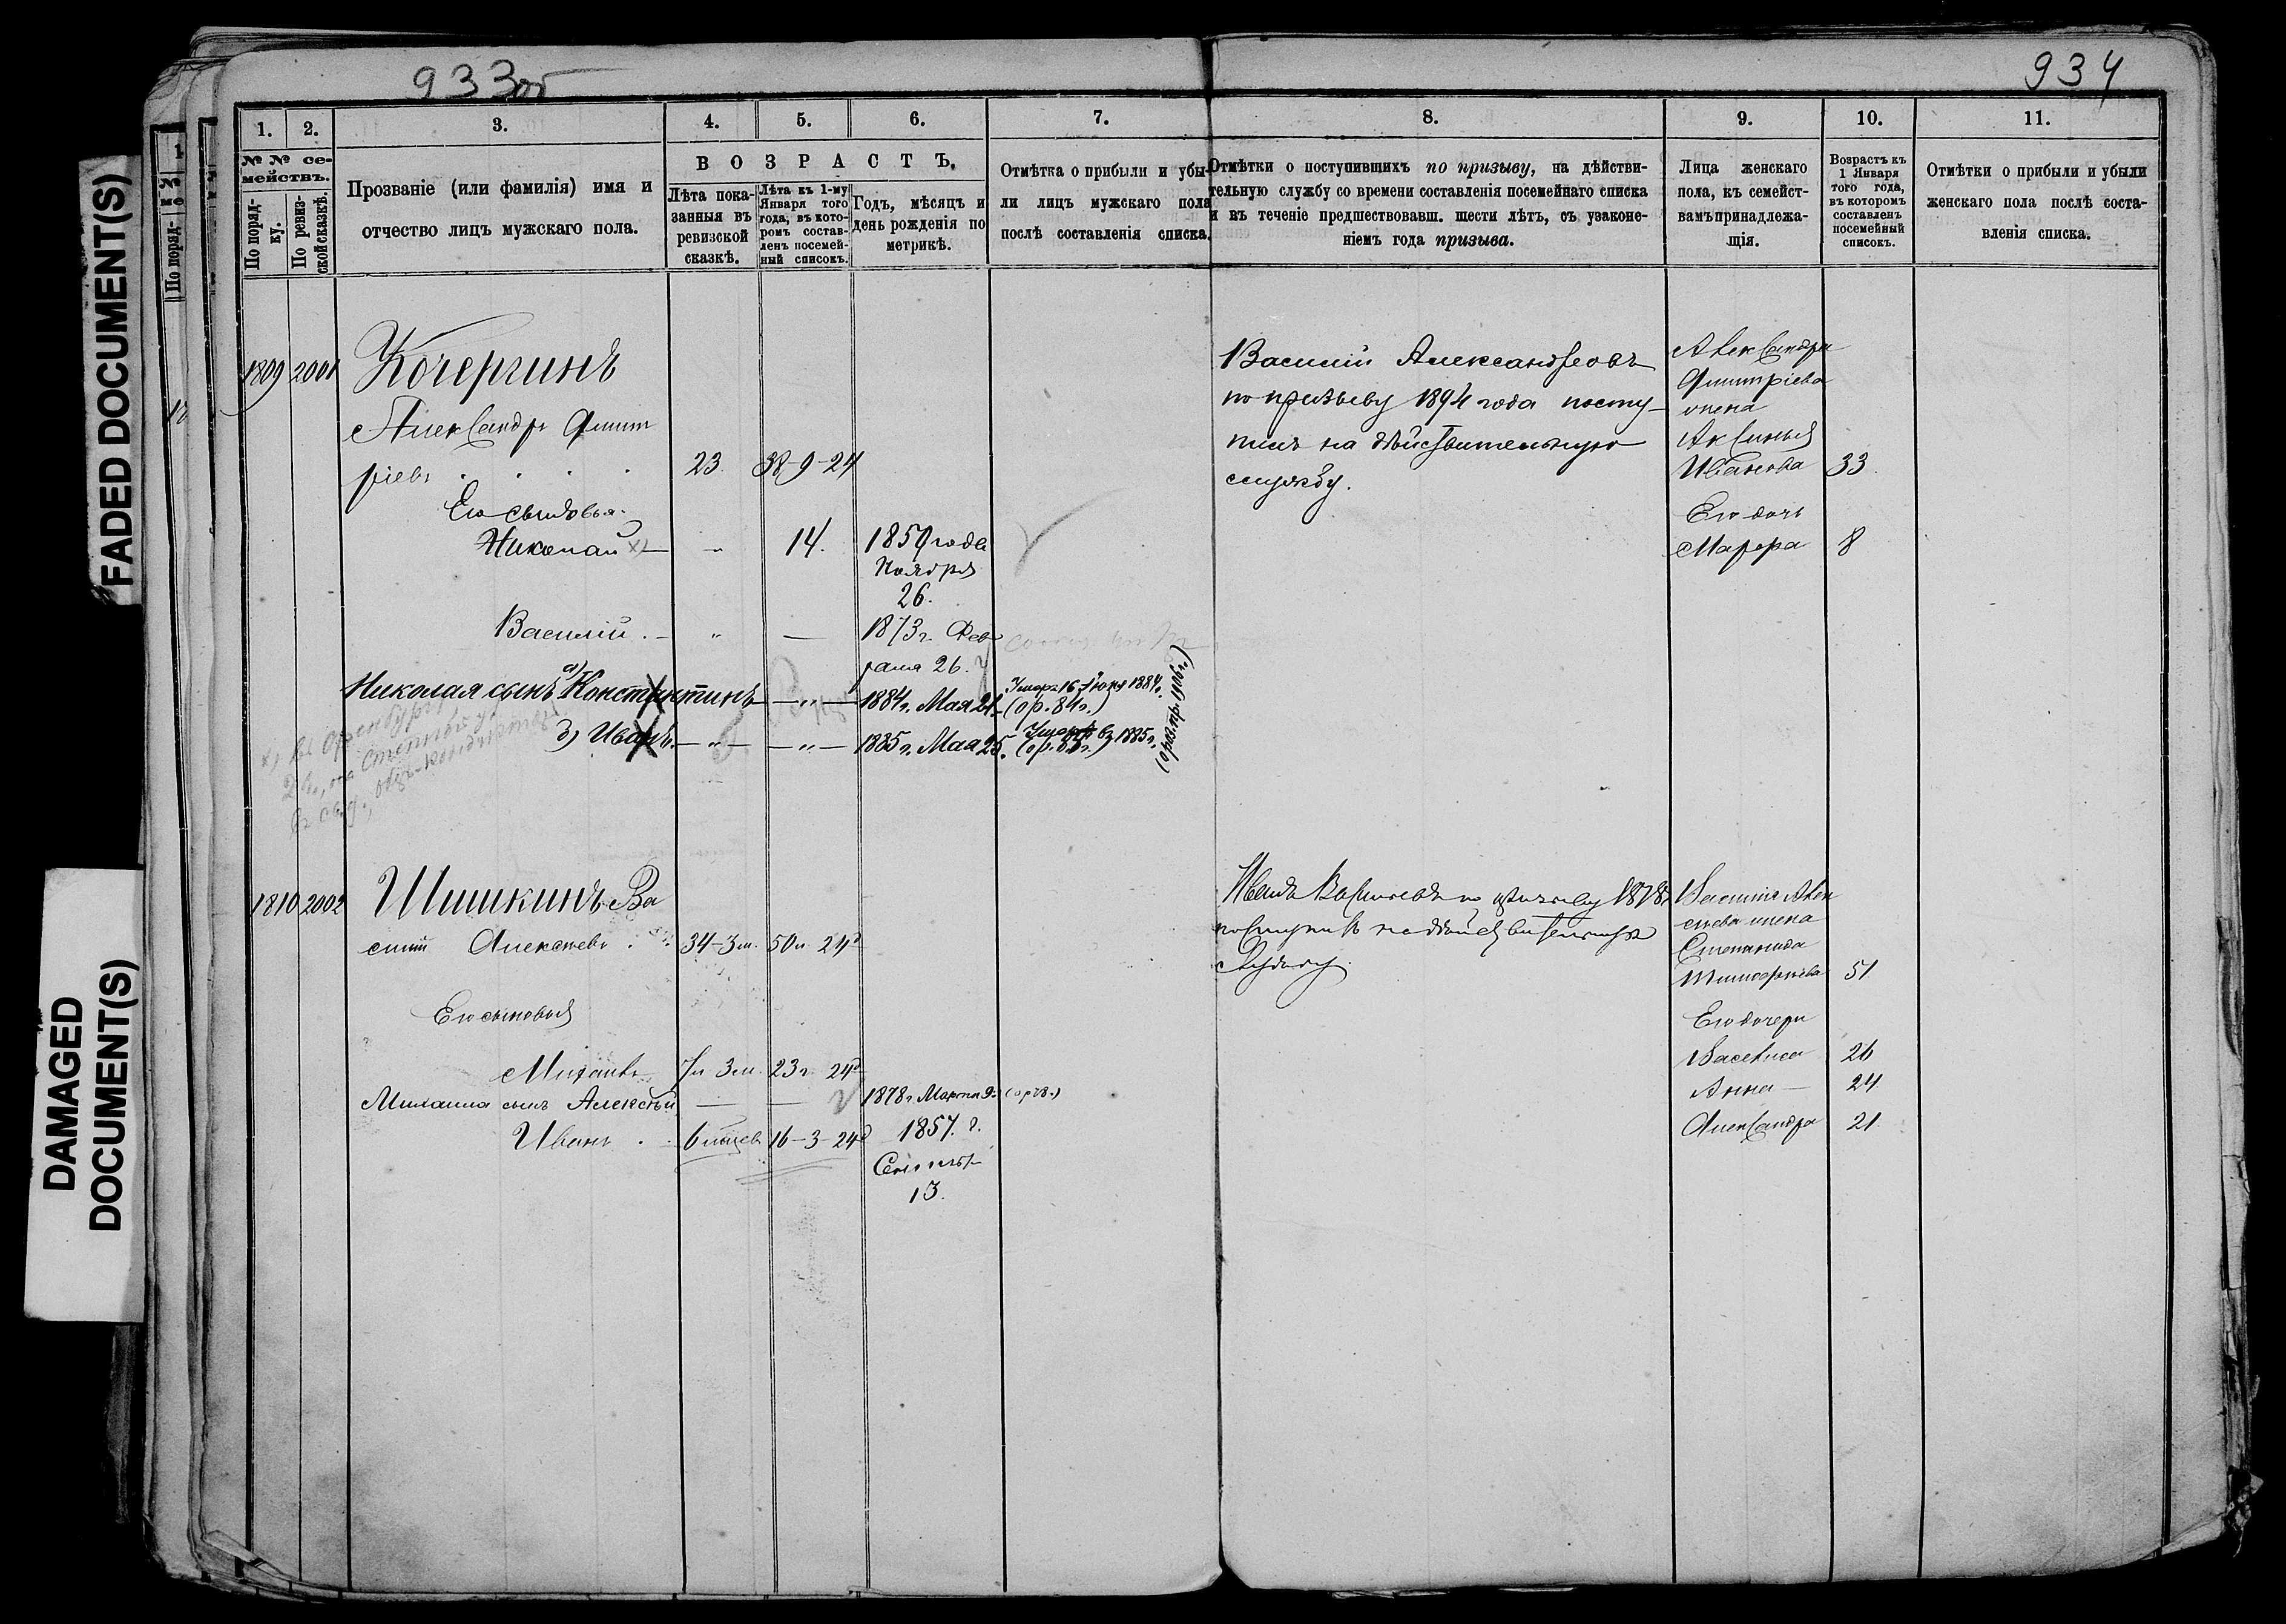 933об
934
FADED DOCUMENT(S)
DAMAGED
DOCUMENT(S)
1. 2. 3. 4. 5. 6. 7. 8. 9. 10. 11.
№ № се-
мействъ.
По поряд-
ку.
По ревиз-
ской сказкѣ.
Прозваніе (или фамилія) имя и
отчество лицъ мужскаго пола.
ВОЗРАСТЪ.
Лѣта пока-
занныя въ
ревизской
сказкѣ.
Лѣта къ 1-му
Января того
года, въ кото-
ромъ состав-
ленъ посемей-
ный списокъ.
Годъ, мѣсяцъ и
день рожденія по
метрикѣ.
Отмѣтка о прибыли и убы-
ли лицъ мужскаго пола
послѣ составленія списка.
Отмѣтки о поступившихъ по призыву, на дѣйстви-
тельную службу со времени составленія посемейнаго списка
и въ теченіе предшествовавш. шести лѣтъ, съ узаконе-
ніемъ года призыва.
Лица женскаго
пола, къ семейст-
вамъ принадлежа-
щія.
Возрастъ къ
1 Января
того года,
въ которомъ
составленъ
посемейный
списокъ.
Отмѣтки о прибыли и убыли
женскаго пола послѣ соста-
вленія списка.
1809 2001 Кочергинъ
Александръ Дмит
ріевъ 23. 38-9-24
Его сыновья.
Николай х) — " 14. 1859 года
Ноября
26.
Василій. — " — 1873 г. Фев
раля 26.
Николая сынъ а) Константинъ — " — 1884 г. Мая 21. Умеръ 16 Іюня 1884 г.
(ор. 84 г.)
б) Иванъ. — " — — " — 1885 г. Мая 25. Умеръ въ 1885 г.
(ор. 85 г.)
х) въ Оренбургѣ
Василій Александровъ
по призыву 1894 года посту-
пилъ на дѣйствительную
службу.
Александра
Дмитріева
жена
Аксинья
Иванова 33.
Его дочь
Марфа 8
1810 2002 Шишкинъ Ва
силій Алексѣевъ 34-3 м. 50 л 24 д
Его сыновья
Михаилъ 7 л 3 м. 23 г 24 д
Михаила сынъ Алексѣй — — 1878 г Марта 9. (ор 78.)
Иванъ 6 мѣсяцев 16-3-24 д 1857. г.
Сентяб
13.
Иванъ Васильевъ по призыву 1878 г
поступилъ на дѣйствительную
службу.
Василія Алек
сѣева жена
Степанида
Тимофеева 51
Его дочери
Василиса 26
Анна — 24.
Александра 21.